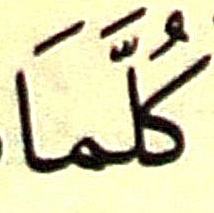 كُلَّمَا